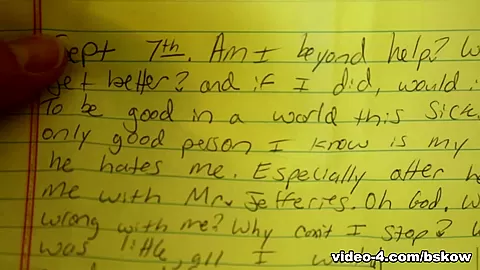 Sept 7th. Am I beyond help?
get better? and if I did, would
To be good in a world this sick.
only good person I know is my
he hates me. Especially after
me with Mr. Jefferies. Oh God,
wrong with me? Why can't I stop?
was little, all I
video-4.com/bskow